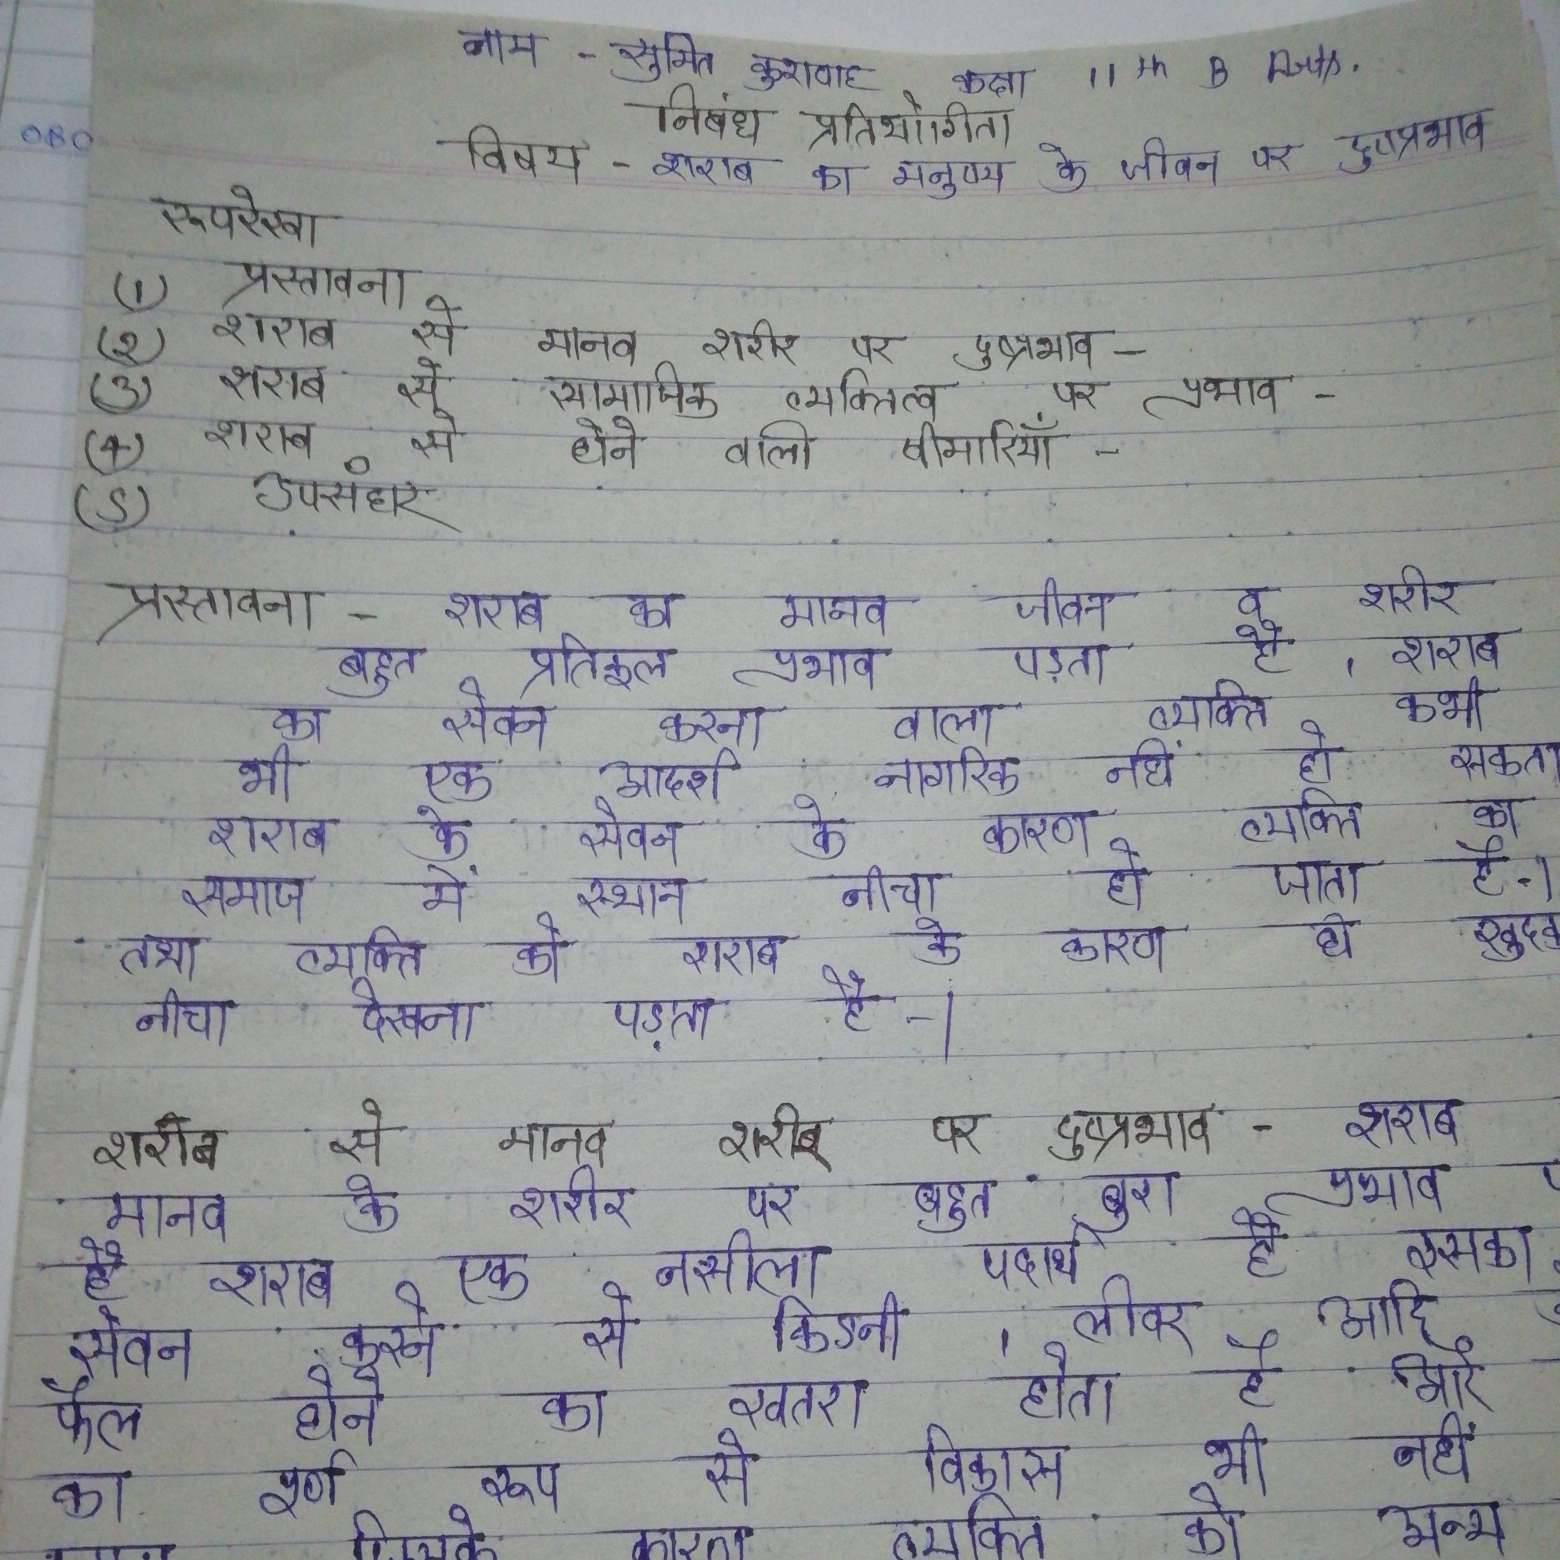 नाम - सुमित कुशवाह कक्षा 11th B Arts.
निबंध प्रतियोगिता
विषय - शराब का मनुष्य के जीवन पर दुष्प्रभाव
रूपरेखा
(1) प्रस्तावना
(2) शराब से मानव शरीर पर दुष्प्रभाव -
(3) शराब से सामाजिक व्यक्तित्व पर प्रभाव -
(4) शराब से होने वाली बीमारियाँ -
(5) उपसंहार
प्रस्तावना - शराब का मानव जीवन व शरीर
बहुत प्रतिकूल प्रभाव पड़ता है, शराब
का सेवन करना वाला व्यक्ति कभी
भी एक आदर्श नागरिक नहीं हो सकता
शराब के सेवन के कारण व्यक्ति का
समाज में स्थान नीचा हो जाता है-।
तथा व्यक्ति को शराब के कारण ही
नीचा देखना पड़ता है-।
शरीब से मानव शरीर पर दुष्प्रभाव - शराब
मानव के शरीर पर बहुत बुरा प्रभाव
है शराब एक नसीला पदार्थ है इसका
सेवन करने से किडनी, लीवर आदि
फैल होने का खतरा होता है और
का पूर्ण रूप से विकास भी नहीं
कारण व्यक्ति को अन्य